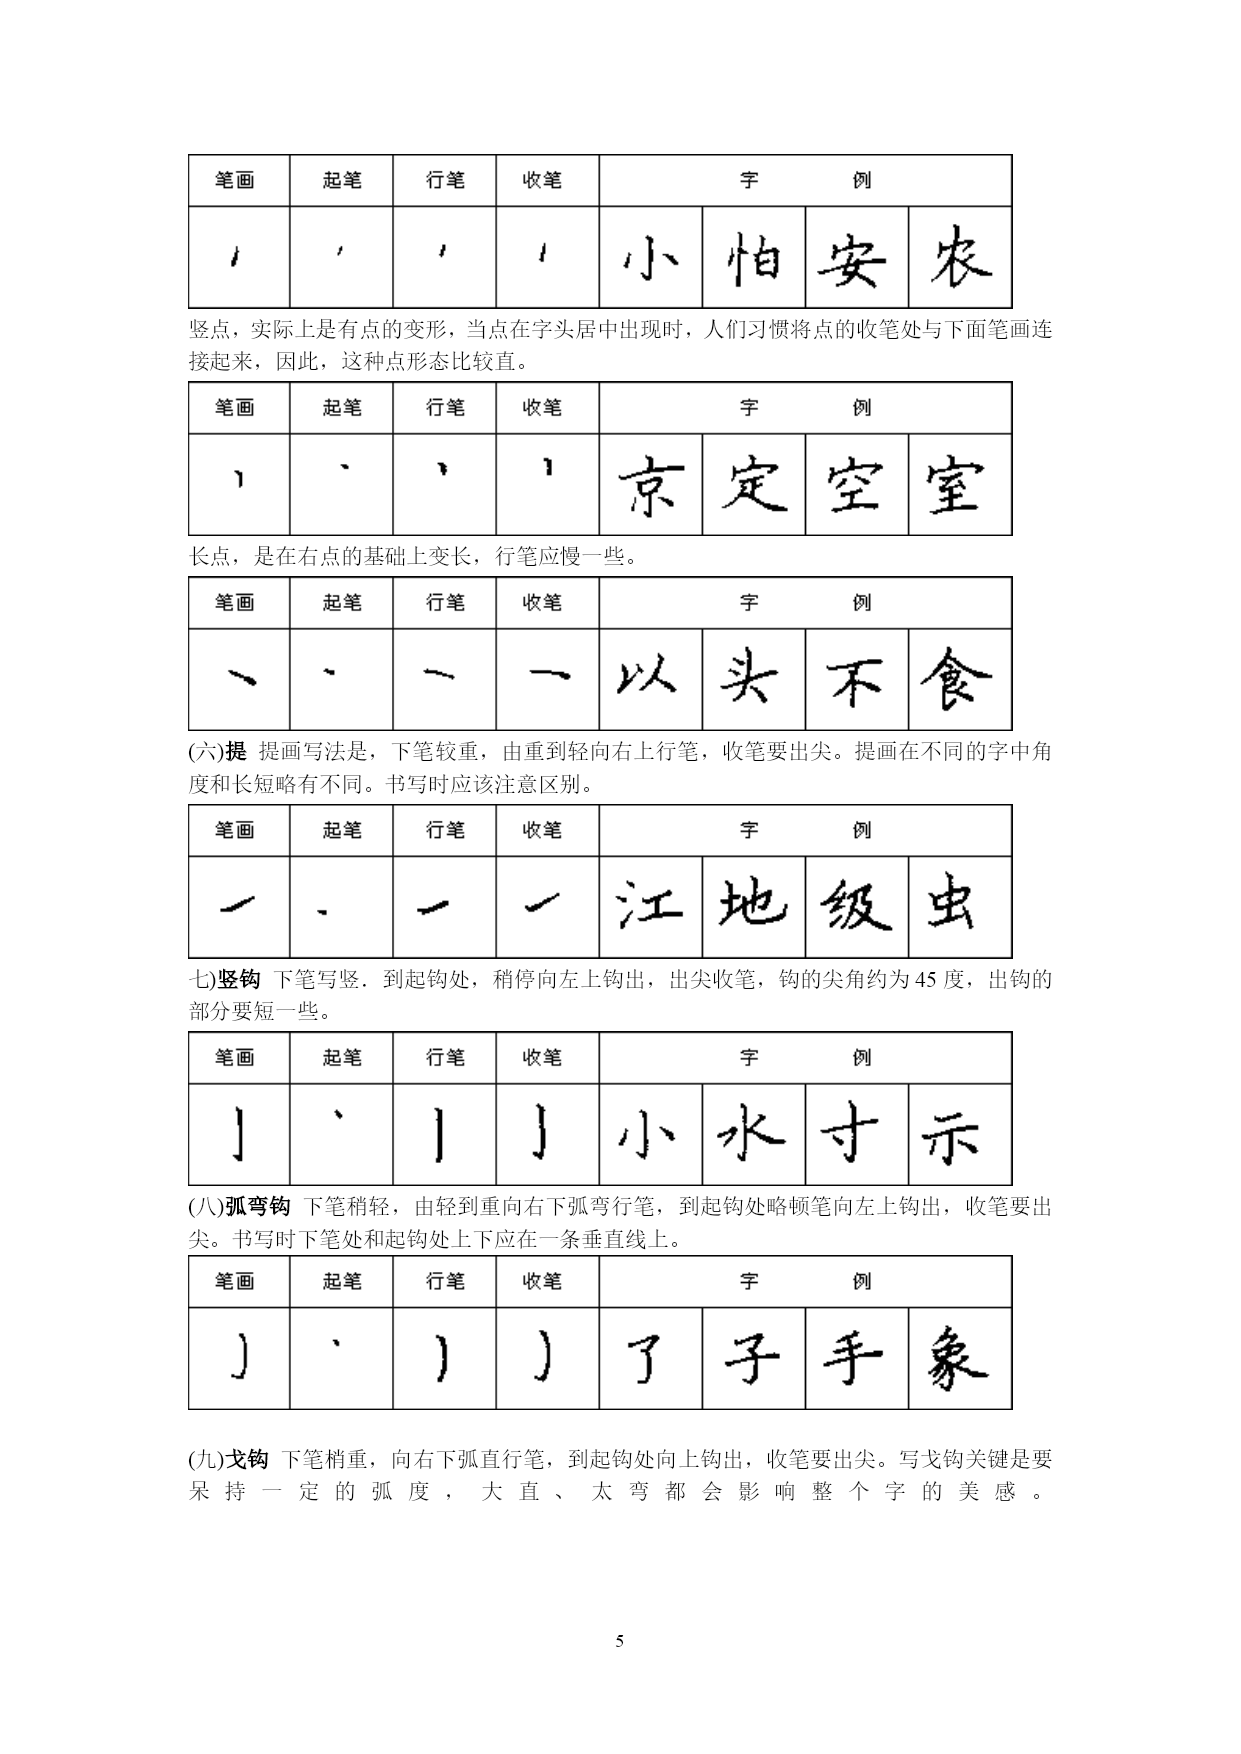 笔画 起笔 行笔 收笔 字 例
小 怕 安 农
竖点，实际上是有点的变形，当点在字头居中出现时，人们习惯将点的收笔处与下面笔画连
接起来，因此，这种点形态比较直。
笔画 起笔 行笔 收笔 字 例
京 定 空 室
长点，是在右点的基础上变长，行笔应慢一些。
笔画 起笔 行笔 收笔 字 例
以 头 不 食
(六)提 提画写法是，下笔较重，由重到轻向右上行笔，收笔要出尖。提画在不同的字中角
度和长短略有不同。书写时应该注意区别。
笔画 起笔 行笔 收笔 字 例
江 地 级 虫
七)竖钩 下笔写竖．到起钩处，稍停向左上钩出，出尖收笔，钩的尖角约为 45 度，出钩的
部分要短一些。
笔画 起笔 行笔 收笔 字 例
小 水 寸 示
(八)弧弯钩 下笔稍轻，由轻到重向右下弧弯行笔，到起钩处略顿笔向左上钩出，收笔要出
尖。书写时下笔处和起钩处上下应在一条垂直线上。
笔画 起笔 行笔 收笔 字 例
了 子 手 象
(九)戈钩 下笔梢重，向右下弧直行笔，到起钩处向上钩出，收笔要出尖。写戈钩关键是要
呆持一定的弧度，大直、太弯都会影响整个字的美感。
5